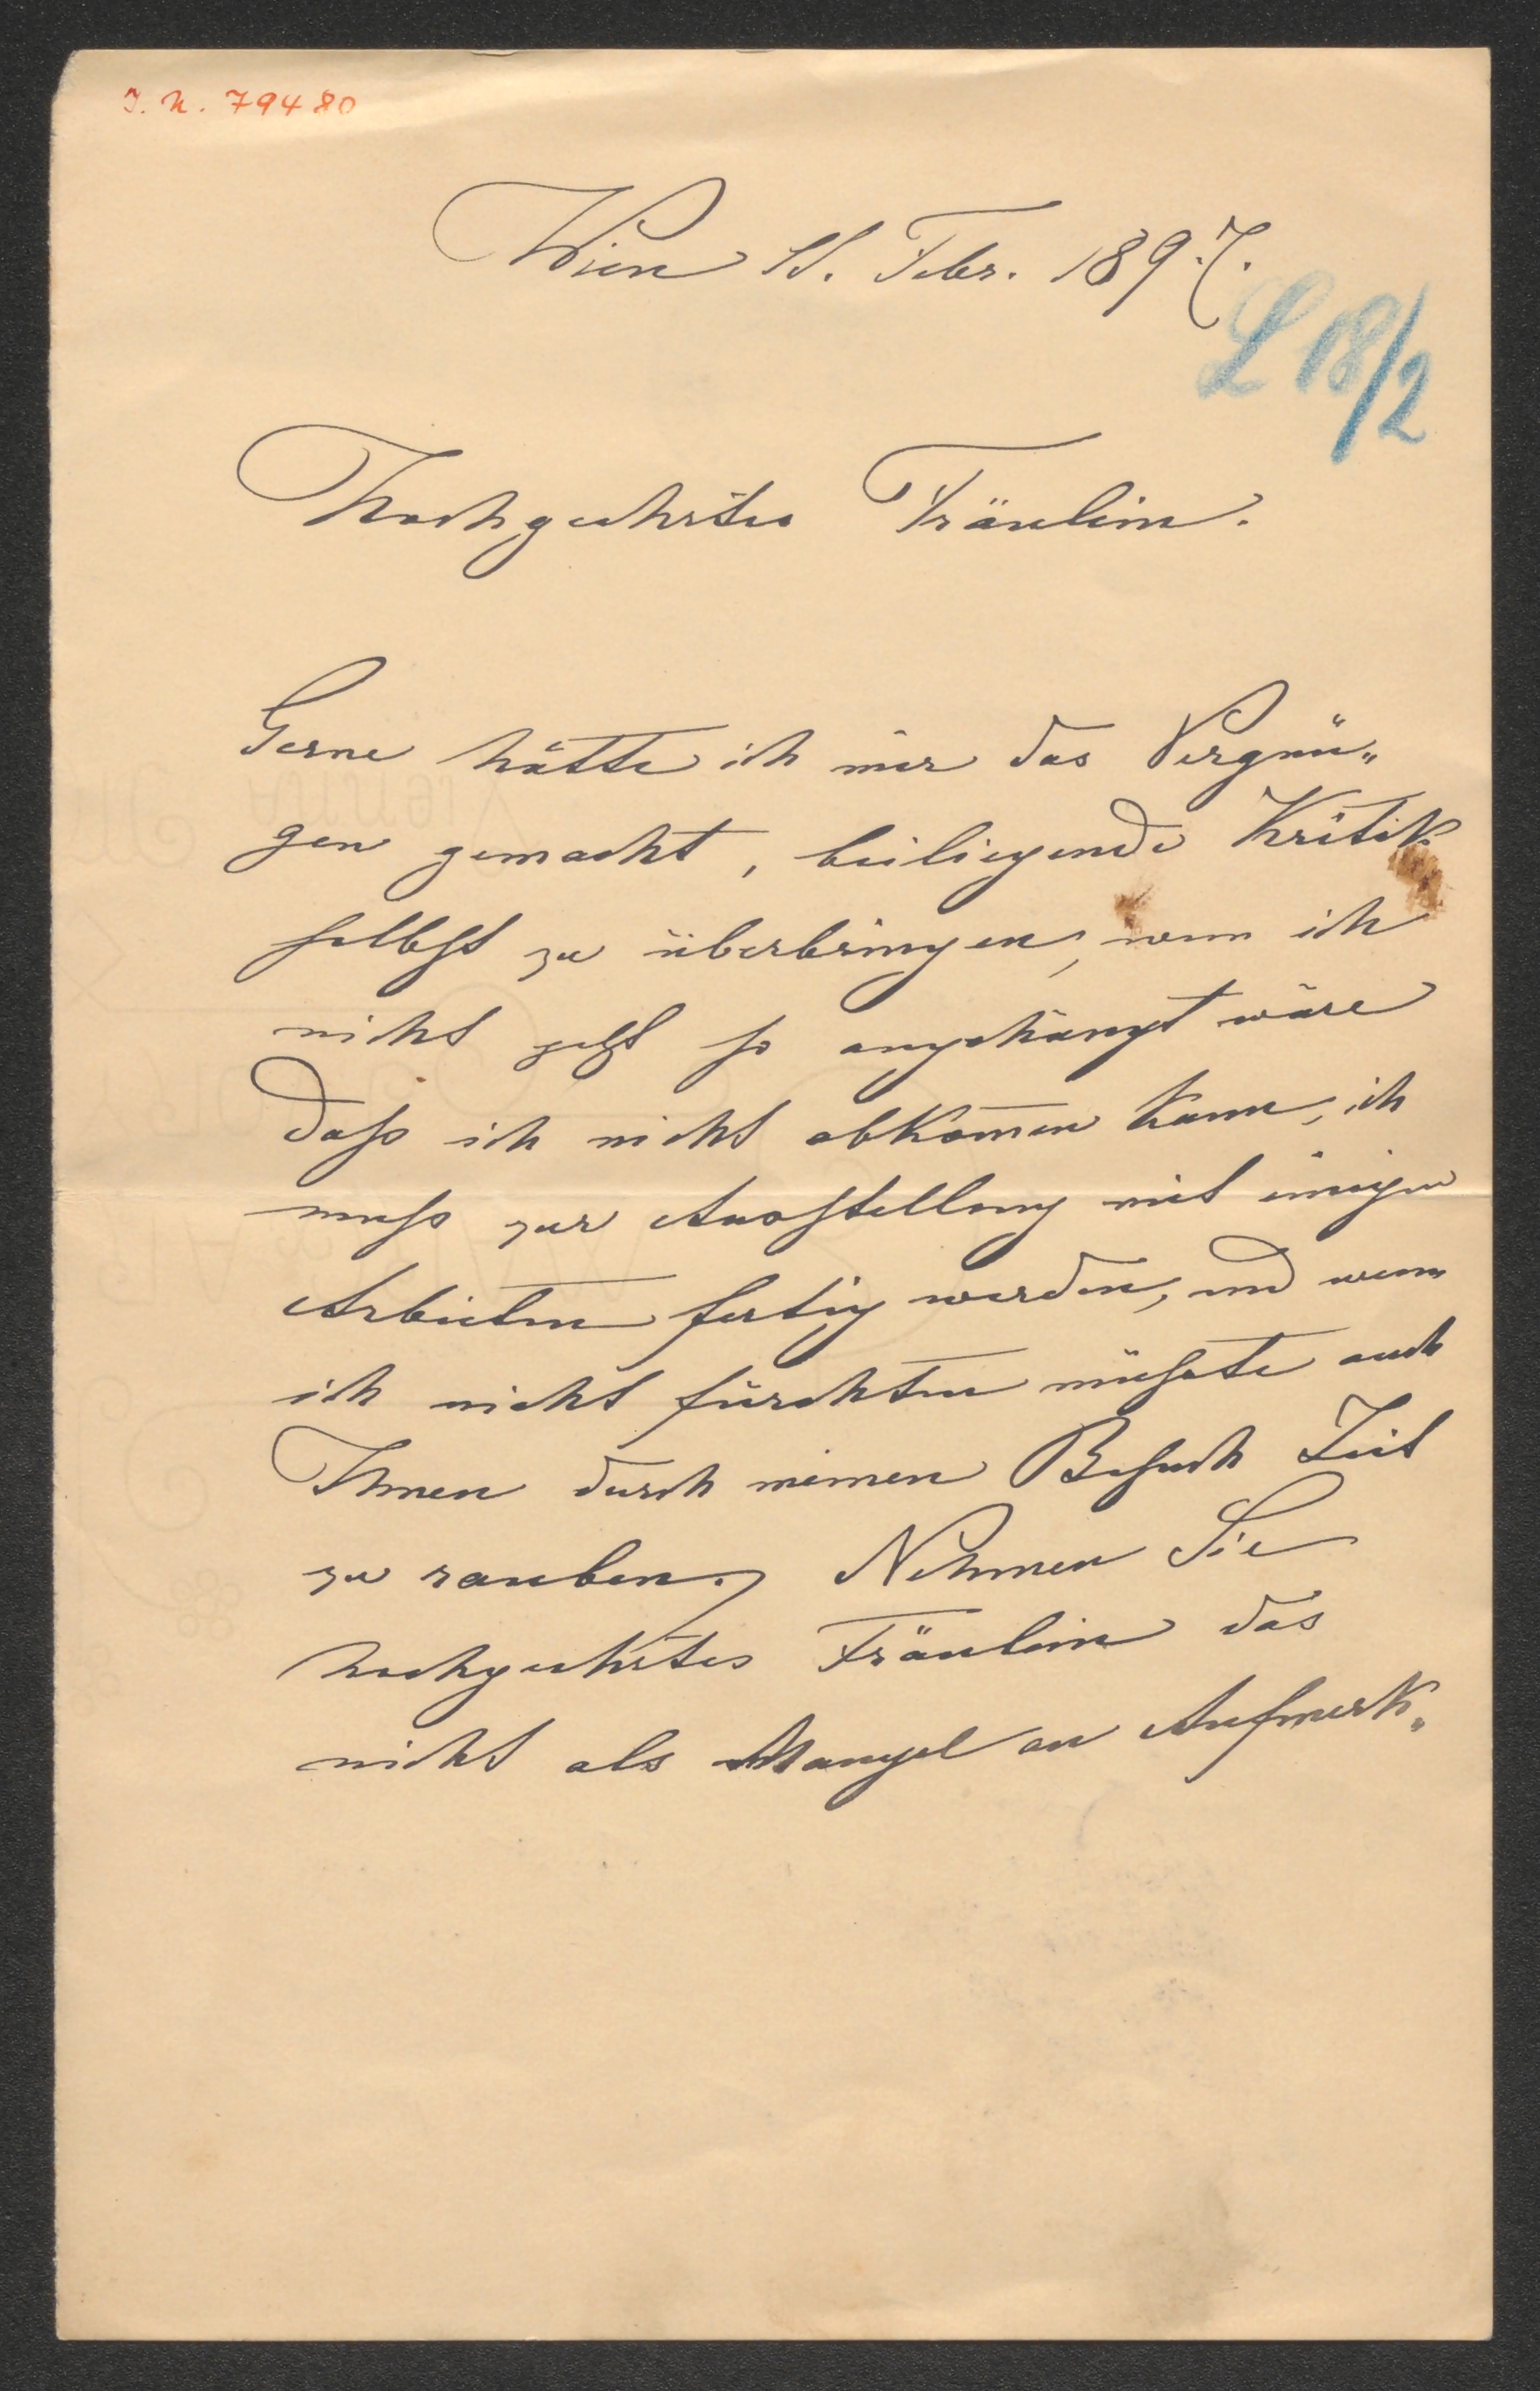 I. N. 79480
Wien 15. Febr. 1897.
L 18/2
Hochgeehrtes Fräulein.
Gerne hätte ich mir das Vergnü„
gen gemacht, beiliegende Kritik
selbst zu überbringen, wenn ich
nicht jetzt so angehängt wäre
daß ich nicht abkom̄en kann, ich
muß zur Ausstellung mit einigen
Arbeiten fertig werden, und wenn
ich nicht fürchten müßte auch
Ihnen durch meinen Besuch Zeit
zu rauben. Nehmen Sie
hochgeehrtes Fräulein das
nicht als Mangel an Aufmerk„